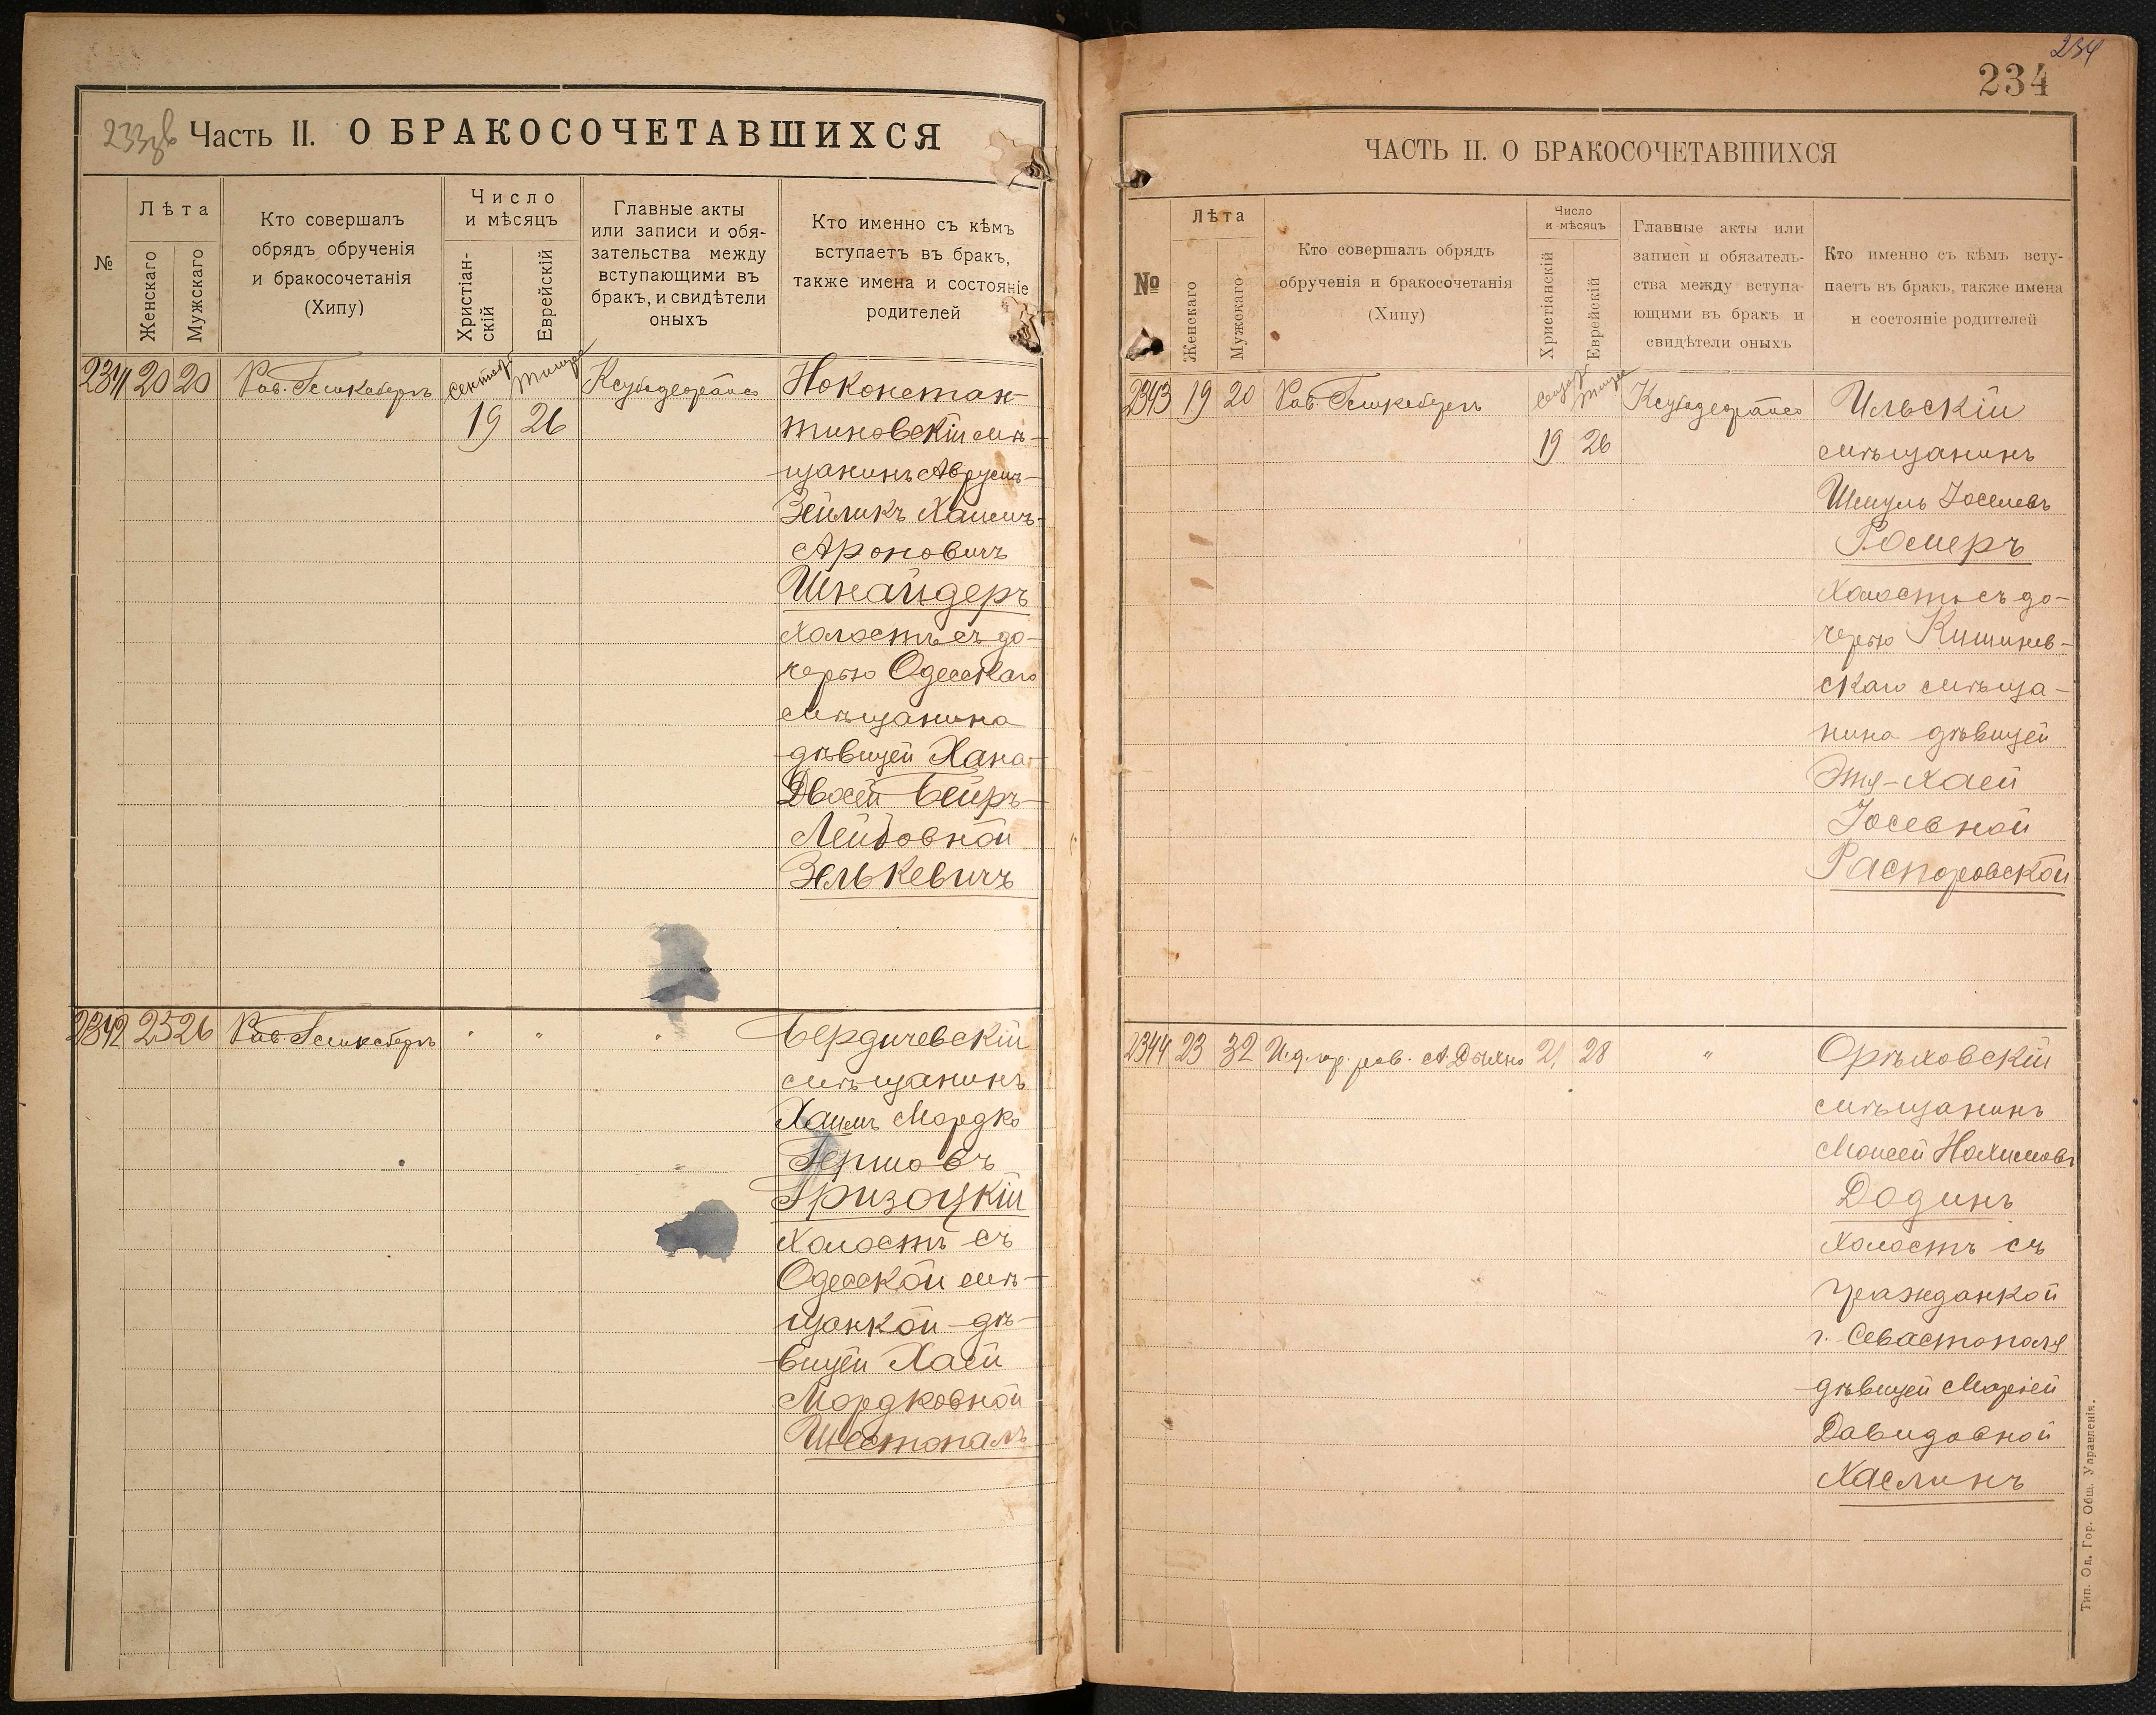 233 об
Часть II. О БРАКОСОЧЕТАВШИХСЯ
№
Лѣта
Женскаго
Мужскаго
Кто совершалъ
обрядъ обрученія
и бракосочетанія
(Хипу)
Число
и мѣсяцъ
Христіан-
скій
Еврейскій
Главные акты
или записи и обя-
зательства между
вступающими въ
бракъ, и свидѣтели
оныхъ
Кто именно съ кѣмъ
вступаетъ въ бракъ,
также имена и состояніе
родителей
2341 20 20 Рав.
19 26
тиновскій мѣ-
щанинъ Аврумъ-
Зейликъ Хаимъ-
Ароновичъ
Шнайдеръ
холостъ съ до-
черью Одесскаго
мѣщанина
дѣвицей Хана-
Двосей Беръ-
Лейбовной
Зелькевичъ
2342 25 26 Рав.
" " "
Бердичевскій
мѣщанинъ
Хаимъ Мордко
Гершовъ
Гризоцкій
холостъ съ
Одесской мѣ-
щанкой дѣ-
вицей Хаей
Мордковной
Шестопалъ
234
234
ЧАСТЬ II. О БРАКОСОЧЕТАВШИХСЯ
№
Лѣта
Женскаго
Мужскаго
Кто совершалъ обрядъ
обрученія и бракосочетанія
(Хипу)
Число
и мѣсяцъ
Христіанскій
Еврейскій
Главные акты или
записи и обязатель-
ства между вступа-
ющими въ бракъ и
свидѣтели оныхъ
Кто именно съ кѣмъ всту-
паетъ въ бракъ, также имена
и состояніе родителей
2343 19 20 Рав.
19 26
Ильскій
мѣщанинъ
Шмуль Іоселевъ
Ромеръ
холостъ съ до-
черью Кишинев-
скаго мѣща-
нина дѣвицей
Этя-Хаей
Іосевной
Распоровской
2344 23 32 И.д. гор. рав. А. Дыхно 21 28 "
Орѣховскій
мѣщанинъ
Моисей Нахимовъ
Додинъ
холостъ съ
гражданкой
г. Севастополя
дѣвицей Маріей
Давидовной
Хаслинъ
Тип. Од. Гор. Общ. Управленія.